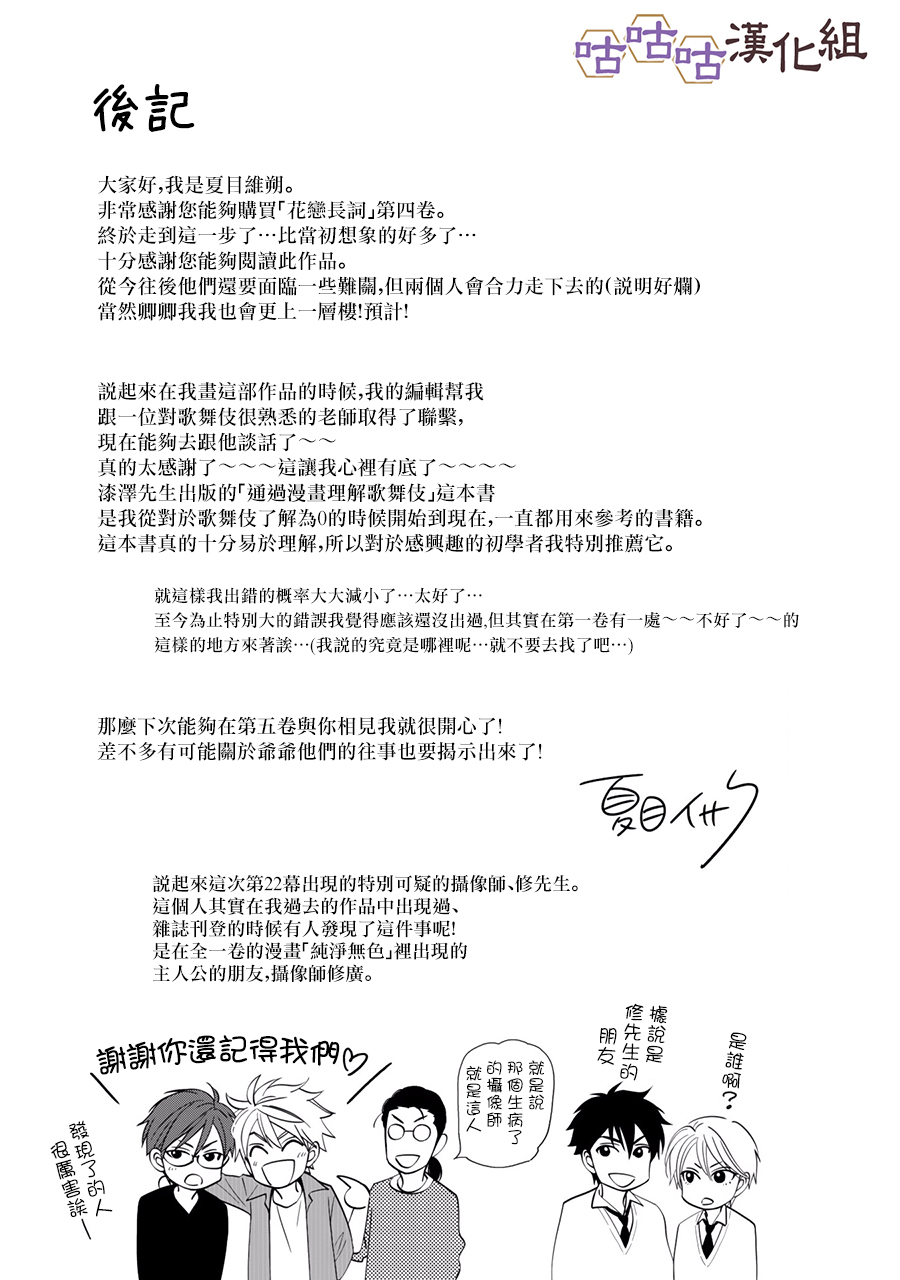 咕咕咕漢化組
後記
大家好,我是夏目維朔。
非常感謝您能夠購買「花戀長詞」第四卷。
終於走到這一步了⋯比當初想象的好多了⋯
十分感謝您能夠閱讀此作品。
從今往後他們還要面臨一些難關,但兩個人會合力走下去的(説明好爛)
當然卿卿我我也會更上一層樓!預計!
説起來在我畫這部作品的時候,我的編輯幫我
跟一位對歌舞伎很熟悉的老師取得了聯繫,
現在能夠去跟他談話了～～
真的太感謝了～～～這讓我心裡有底了～～～～
漆澤先生出版的「通過漫畫理解歌舞伎」這本書
是我從對於歌舞伎了解為0的時候開始到現在,一直都用來參考的書籍。
這本書真的十分易於理解,所以對於感興趣的初學者我特別推薦它。
就這樣我出錯的概率大大減小了⋯太好了⋯
至今為止特別大的錯誤我覺得應該還沒出過,但其實在第一卷有一處～～不好了～～的
這樣的地方來著誒⋯(我説的究竟是哪裡呢⋯就不要去找了吧⋯)
那麼下次能夠在第五卷與你相見我就很開心了!
差不多有可能關於爺爺他們的往事也要揭示出來了!
夏目イサク
説起來這次第22幕出現的特別可疑的攝像師、修先生。
這個人其實在我過去的作品中出現過、
雜誌刊登的時候有人發現了這件事呢!
是在全一卷的漫畫「純淨無色」裡出現的
主人公的朋友,攝像師修廣。
謝謝你還記得我們♡
發現了的人
很厲害誒ー
就是說
那個生病了
的攝像師
就是這人
據說是
修先生的
朋友
是誰啊?